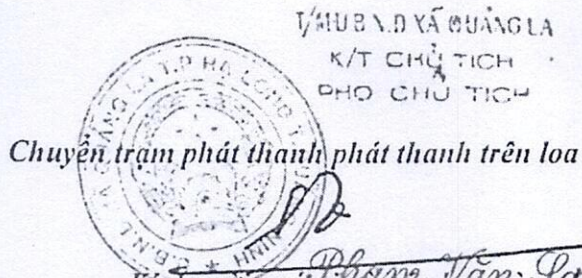 T/M U B N.D XÃ QUẢNG LA
K/T CHỦ TỊCH
PHO CHỦ TỊCH
Chuyển trạm phát thanh phát thanh trên loa
Phạm Văn